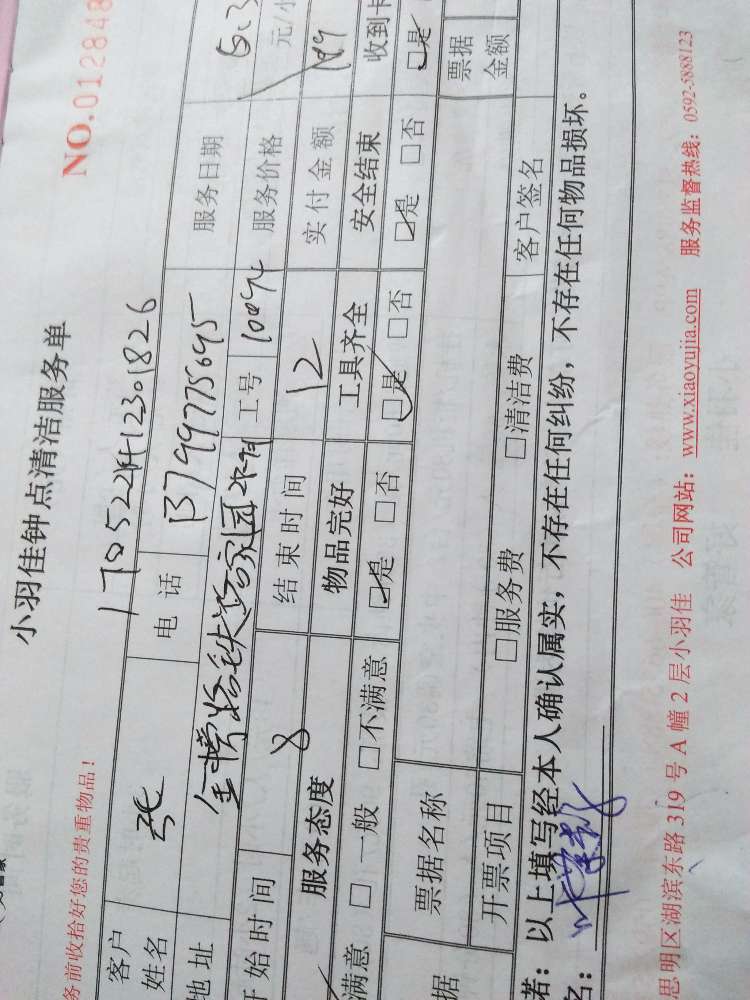 NO.012848
小羽佳钟点清洁服务单
务前收拾好您的贵重物品！
客户姓名 张 电话 13799775695 服务日期 6.3
地址 金榜路铁路家园 工号 服务价格 元/小
开始时间 8 结束时间 12 实付金额
服务态度 物品完好 工具齐全 安全结束 收到卡
满意 □一般 □不满意 □是 □否 □是 □否 □是 □否 □是
据 票据名称 票据金额
开票项目 □服务费 □清洁费 客户签名
若：以上填写经本人确认属实，不存在任何纠纷，不存在任何物品损坏。
名：
思明区湖滨东路 319 号 A 幢 2 层小羽佳 公司网站：www.xiaoyujia.com 服务监督热线：0592-5888123